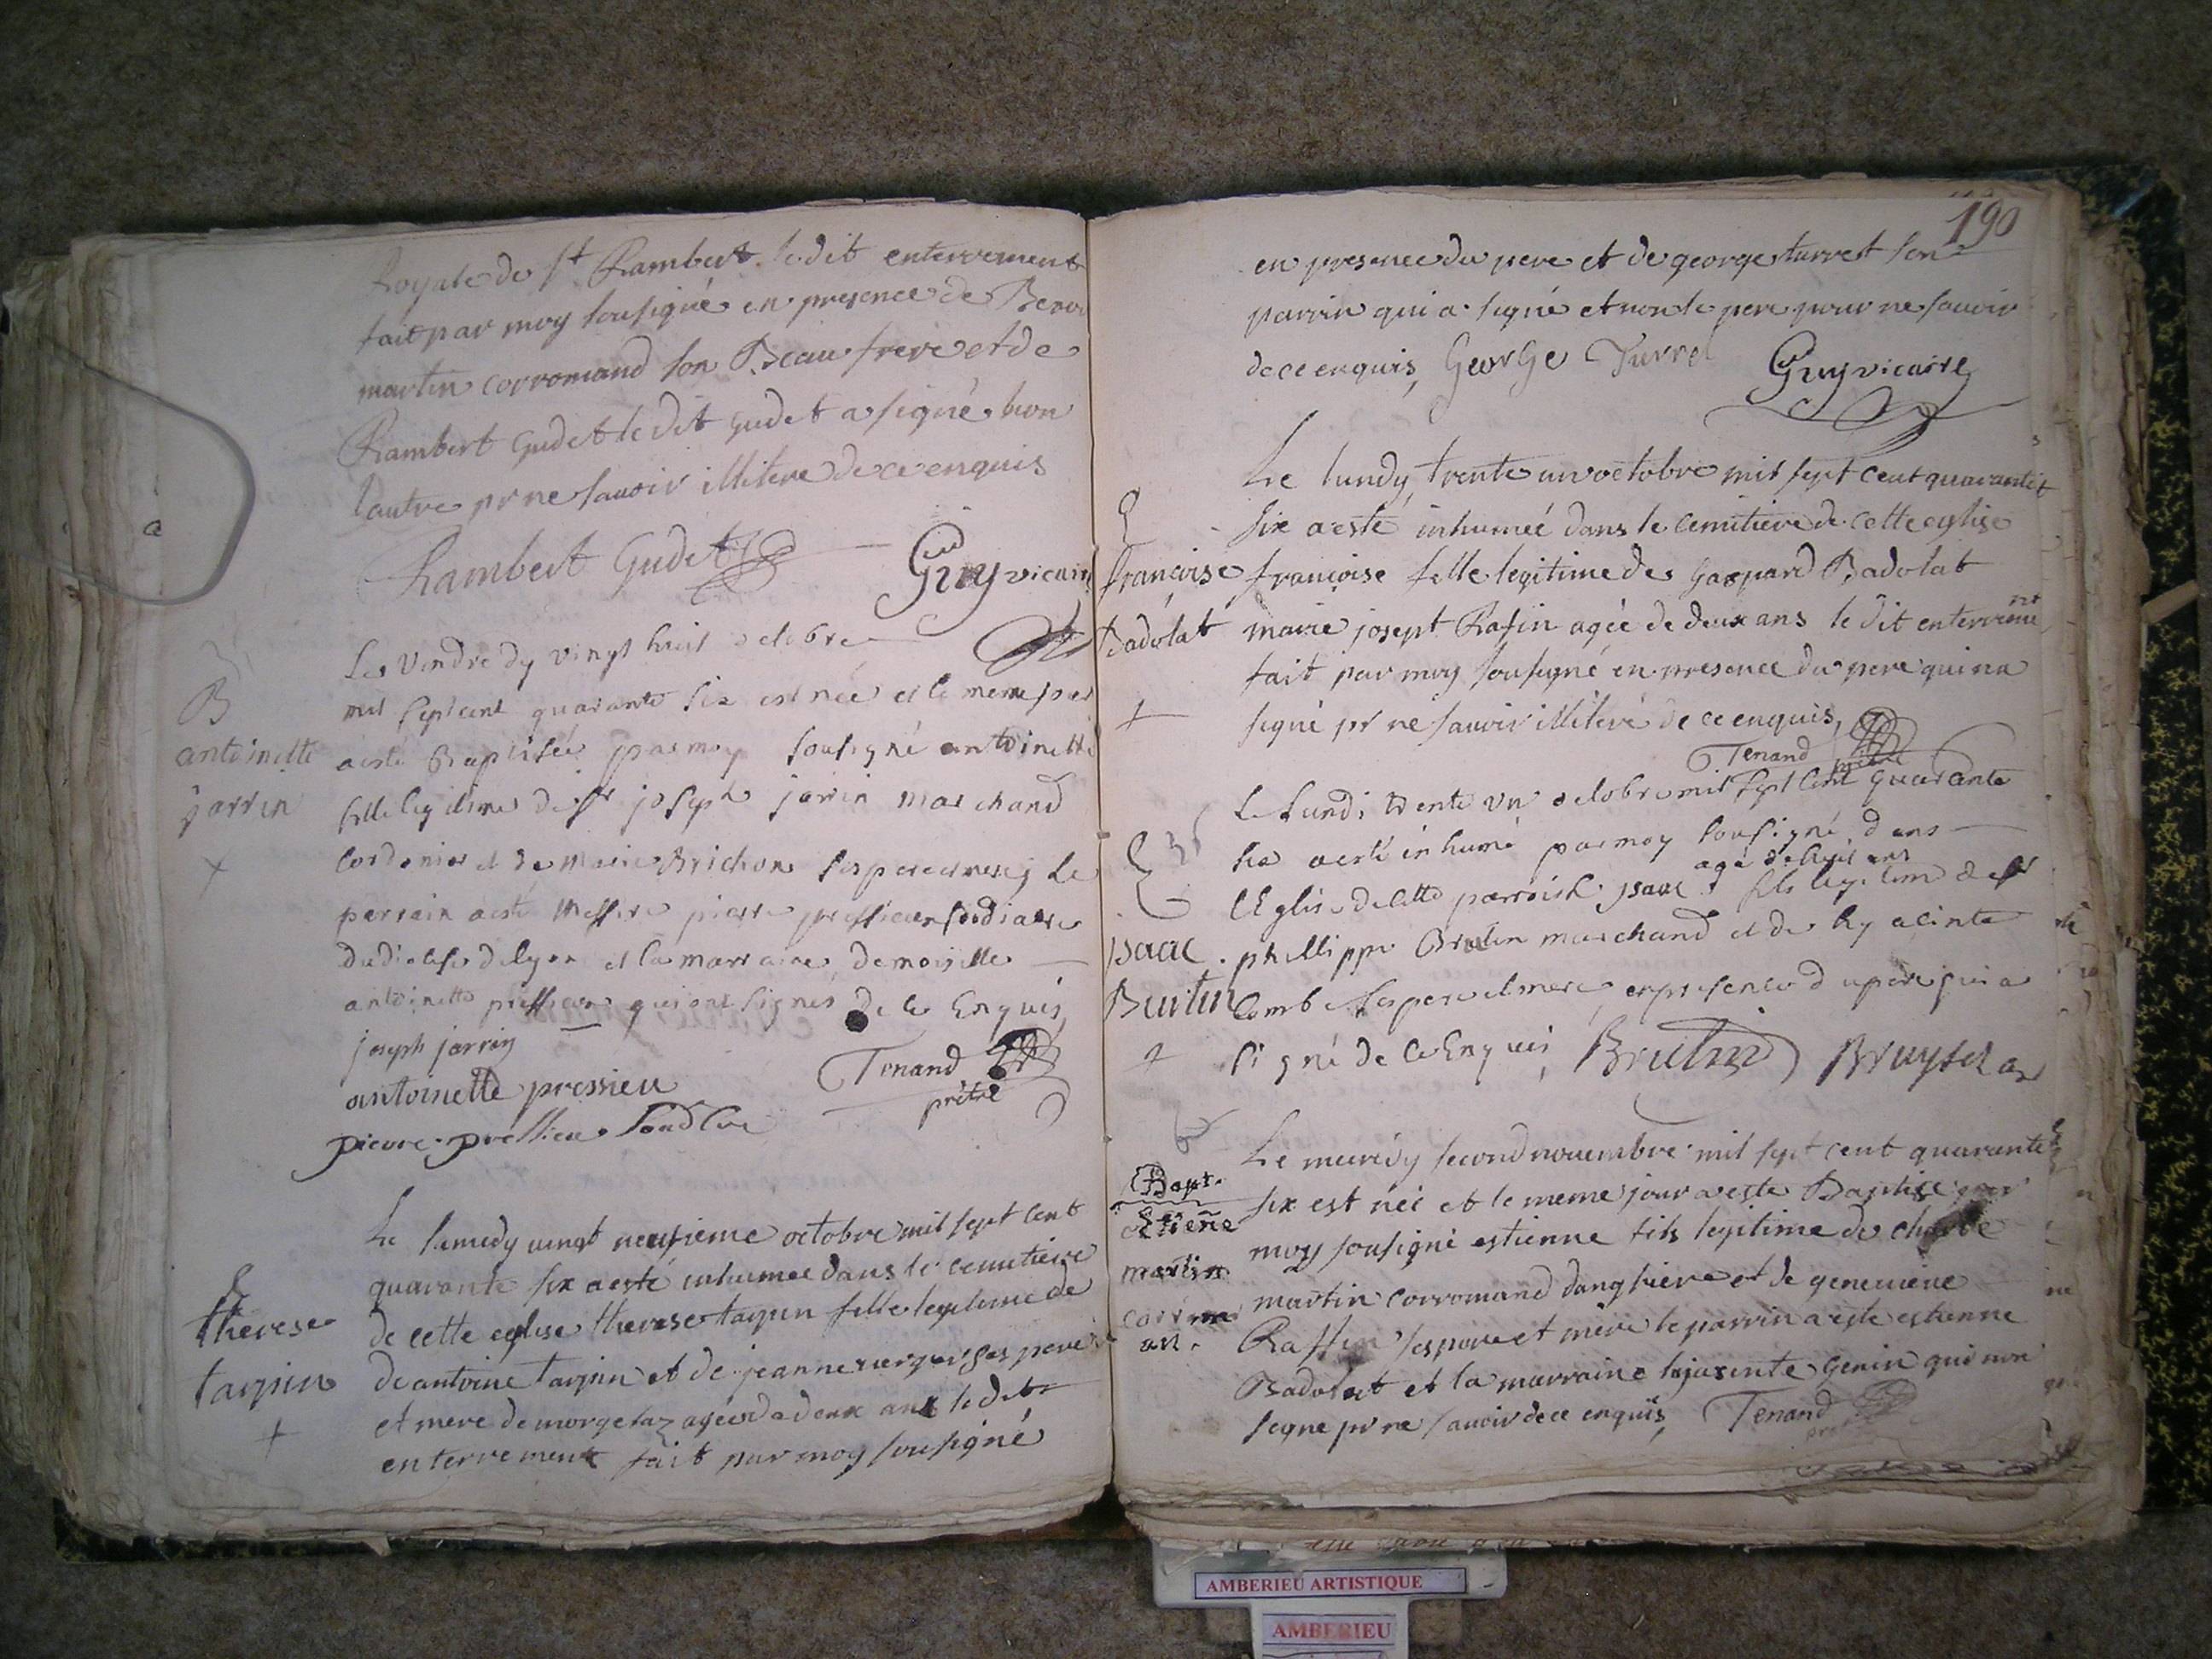 Royale de St Rambert le dit enterrement
fait par moy sousigné en presence de
martin corromand son Beau frere et de
Rambert Gudet le dit Gudet a signé non
lautre pr ne savoir illiteré de ce enquis
Rambert Gudet
Guy vicaire
B
antoinette
jarrin
Le Vendredy vingt huit octobre
mil sept cent quarante six est née et le meme jour
a esté Baptisée par moy sousigné antoinette
fille legitime de sr joseph jarrin marchand
cordonier et de Marie Brichon ses pere et mere le
parrain a esté Messire pierre pressieu soudiacre
du diocese de lyon et la marraine demoiselle
antoinette pressieu qui ont signés de ce Enquis
joseph jarrin
antoinette pressieu
pierre pressieu
Tenand
prêtre
E
therese
tarpin
Le samedy vingt neufieme octobre mil sept cent
quarante six a esté inhumee dans le cemitiere
de cette eglise therese tarpin fille legitime de
de antoine tarpin et de jeanne ses pere
et mere de morgelaz agée de deux ans le dit
enterrement fait par moy sousigné
190
en presence du pere et de george turret son
parrin qui a signé et non le pere pour ne savoir
de ce enquis George Turrel
Guy vicaire
E
françoise
badolat
Le lundy trente un octobre mil sept cent quarante
six a esté inhumée dans le cemitiere de cette eglise
françoise fille legitime de Gaspard Badolat
marie josept Rafin agée de deux ans le dit enterremt
fait par moy sousigné en presence du pere qui na
signé pr ne savoir illiteré de ce enquis
Tenand prêtre
E
isaac
Burtin
Le Lundi trente un octobre mil sept cent quarante
six a esté inhumé par moy sousigné dans
l'Eglise de cette parroisse isaac agé de huit ans fils legitime de sr
phillippe Brutin marchand et de hyacinte
Combe ses pere et mere en presence du pere qui a
signé de ce Enquis Brutin
Bapt.
Etieñe
martin
corrom
an.
Le mecredy second novembre mil sept cent quarante
six est néé et le meme jour a esté Baptisé par
moy sousigné estienne fils legitime de
martin corromand danghiere et de genevieve
Raffin ses pere et mere le parrin a esté estienne
Badolat et la marraine hyasente Genin qui non
signe pr ne savoir de ce enquis Tenand
AMBERIEU ARTISTIQUE
AMBERIEU